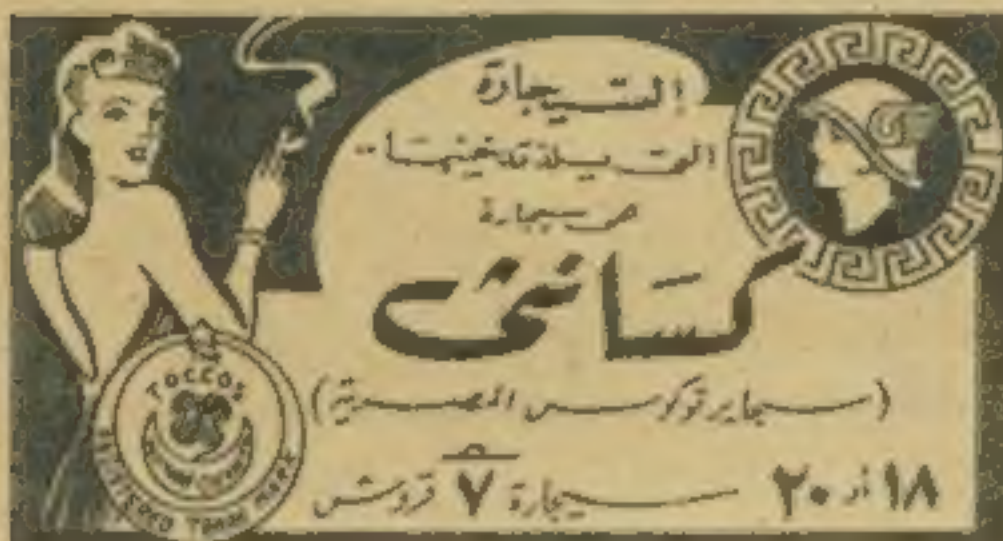 السيجارة
التى يلذ تدخينها..
هى سيجارة
كساتى
(سجاير توكوس المصرية)
١٨ أو ٢٠ سيجارة ٧ قروش
TOCCOS
REGISTERED TRADE MARK